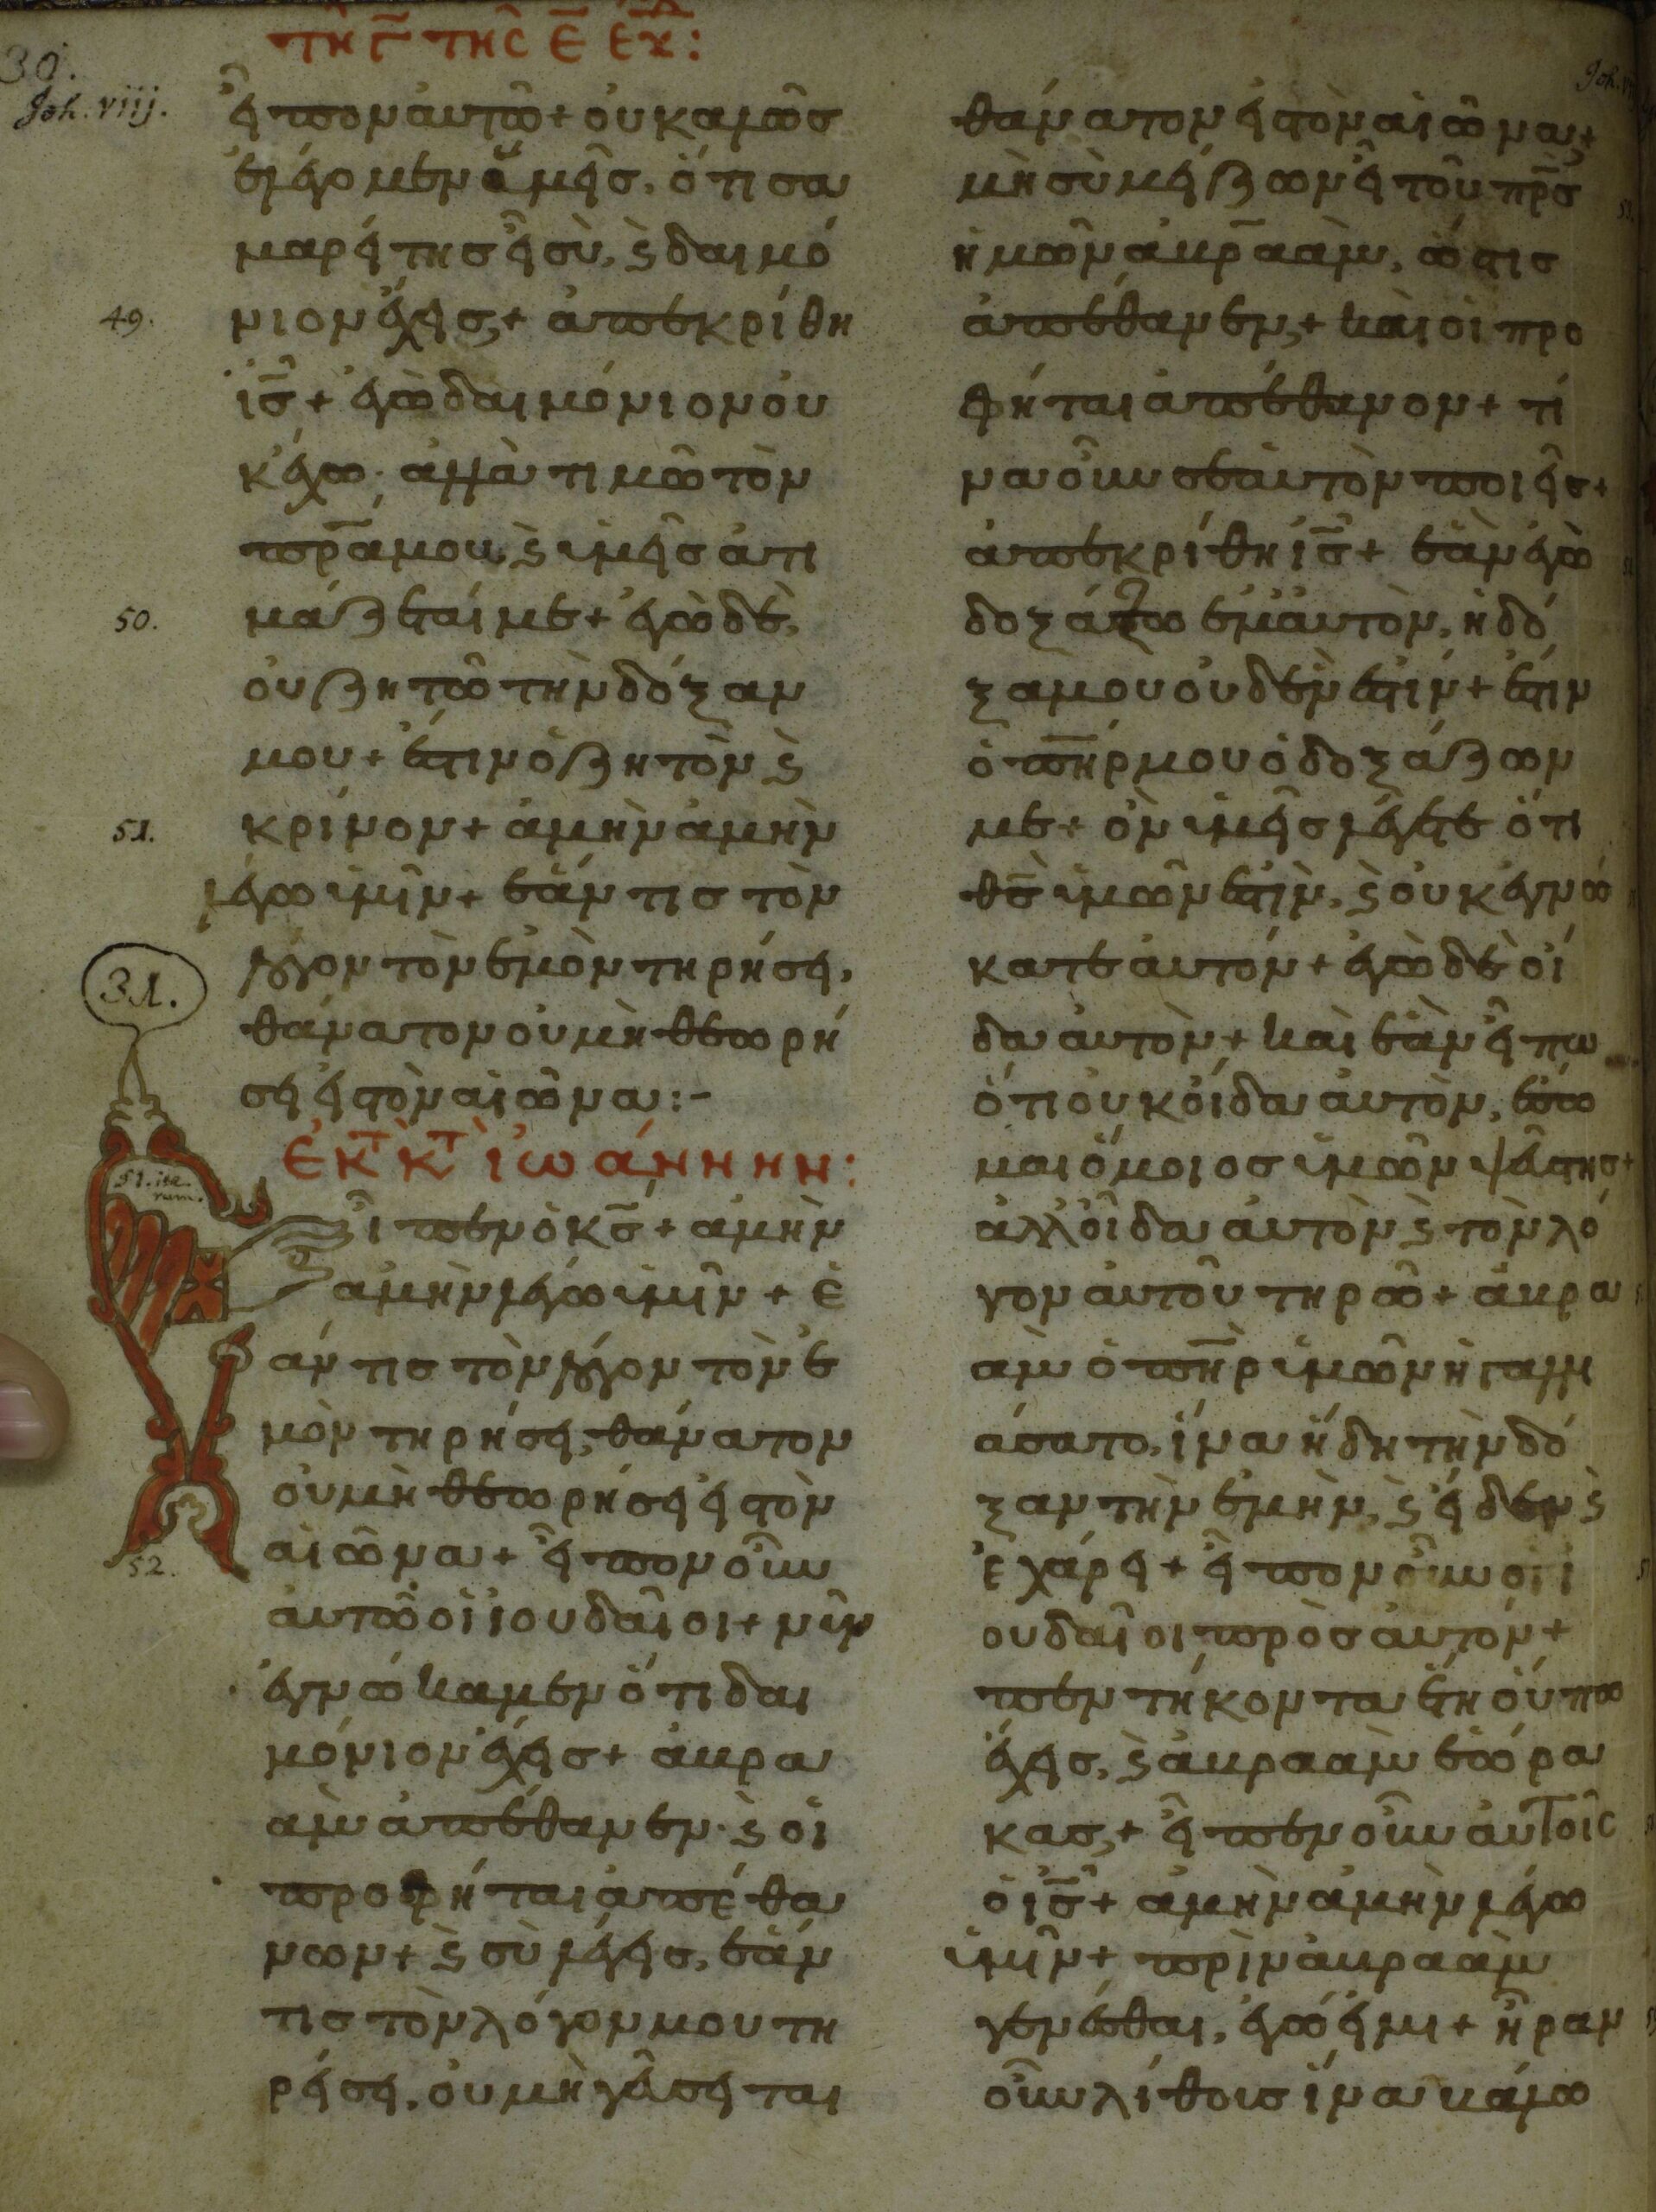 τῆ Γ τῆς Ε Ε
30.
Joh. viij.
εἶπον αὐτῶ + οὐ καλῶσ
ἐλέγομεν ἡμεῖσ, ὅτι σα
μαρείτησ εἶ σὺ, ϗ δαιμό
νιον ἔχεισ + ἀπεκρίθη
49.
ἰς̅ + ἐγὼ δαιμόνιον οὐ
κ ἔχω · ἀλλὰ τιμῶ τὸν
πρ̅α μου, ϗ ὑμεῖσ ἀτι
μάζεταί με + ἐγὼ δὲ,
50.
οὐ ζητῶ τὴν δόξαν
μου + ἔστιν ὁ ζητὸν ϗ
κρίνον + ἀμὴν ἀμὴν
51.
λέγω ὑμῖν + ἐάν τισ τὸν
λόγον τὸν ἐμὸν τηρήσει,
θάνατον οὐ μὴ θεωρή
σει εἰς τὸν αἰῶνα :-
31.
ἐκ τ κτ ἰωάννην :
51. ite
rum.
εἶπεν ὁ κς̅ + ἀμὴν
ἀμὴν λέγω ὑμῖν + ἐ
άν τισ τὸν λόγον τὸν ἐ
μὸν τηρήσει, θάνατον
οὐ μὴ θεωρήσει εἰς τὸν
αἰῶνα + εἶπον οὖν
52.
αὐτῶ οἱ ἰουδαῖοι + νῦν
ἐγνώκαμεν ὅτι δαι
μόνιον ἔχεισ + ἀβρα
ὰμ ἀπέθανεν · ϗ οἱ
προφήται ἀπέθα
νων + ϗ σὺ λέγεισ, ἐάν
τισ τὸν λόγον μου τη
ρήσει, οὐ μὴ γεύσηται
θάνατον εἰς τὸν αἰῶνα +
μὴ σὺ μείζων εἶ τοῦ πρ̅σ
ἡμῶν ἀβρ̅αὰμ, ὥστισ
ἀπέθανεν + καὶ οἱ προ
φήται ἀπέθανον + τί
να οὖν σεαυτὸν ποιεῖσ +
ἀπεκρίθη ἰς̅ + ἐὰν ἐγὼ
δοξάζω ἐμαυτὸν, ἡ δό
ξα μου οὐδὲν ἐστίν + ἔστιν
ὁ πη̅ρ μου ὁ δοξάζων
με + ὃν ὑμεῖσ λέγετε ὅτι
θς̅ ὑμῶν ἐστὶν, ϗ οὐκ ἐγνώ
κατε αὐτόν + ἐγὼ δὲ οἶ
δα αὐτὸν + καὶ ἐὰν εἴπω
ὅτι οὐκ οἶδα αὐτὸν, ἔσω
μαι ὅμοιοσ ὑμῶν ψεύστησ +
ἀλλ' οἶδα αὐτὸν ϗ τὸν λό
γον αὐτοῦ τηρῶ + ἀβρα
ὰμ ὁ πη̅ρ ὑμῶν ἠγαλλι
άσατο, ἵνα ἤδη τὴν δό
ξαν τὴν ἐμὴν, ϗ εἶδεν ϗ
ἐχάρει + εἶπον οὖν οἱ ἰ
ουδαῖοι πρὸσ αὐτόν +
πεντήκοντα ἔτη οὔπω
ἔχεισ, ϗ ἀβραὰμ ἑώρα
κασ, + εἶπεν οὖν αὐτοῖς
ὁ ἰς̅ + ἀμὴν ἀμὴν λέγω
ὑμῖν + πρὶν ἀβραὰμ
γενέσθαι, ἐγώ εἰμι + ἦραν
οὖν λίθουσ ἵνα βάλω